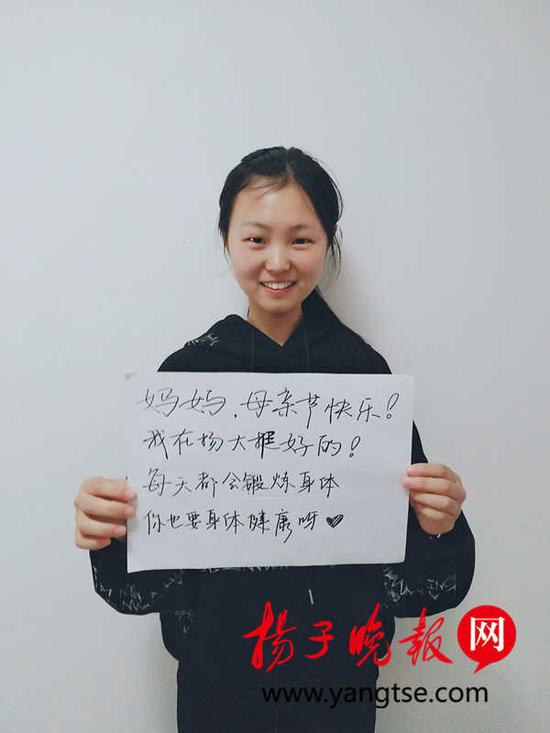 妈妈，母亲节快乐！
我在扬大挺好的！
每天都会锻炼身体
你也要身体健康呀♥
扬子晚报网
www.yangtse.com